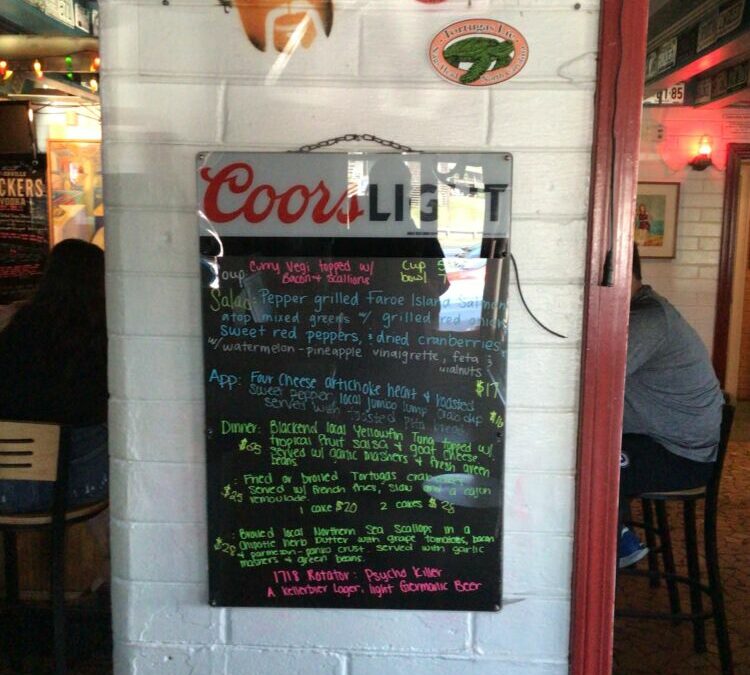 Tortugas Lie
CKERS
VODKA
91-85
Coors LIGHT
Soup Curry Vegi topped w/ Cup 5
Bacon & Scallions bowl 7
Salad: Pepper grilled Faroe Island Salmon
atop mixed greens w/ grilled red onion
sweet red peppers, & dried cranberries,
w/ watermelon-pineapple vinaigrette, feta &
walnuts $17
App: Four Cheese artichoke heart & roasted
sweet pepper, local jumbo lump crab dip
served with toasted pita bread
Dinner: Blackend local Yellowfin Tuna topped w/
tropical fruit salsa & goat cheese
served w/ garlic mashers & fresh green
beans
: Fried or broiled Tortugas crabcakes
$25 served w/ french fries, slaw and a cajun
remoulade.
1 cake $20 2 cakes $
: Broiled local Northern Sea Scallops in a
chipotle herb butter with grape tomatoes, bacon
$28 & parmesan-panko crust. served with garlic
mashers & green beans.
1718 Rotator: Psycho Killer
A Kellerbier Lager, light Germanic Beer